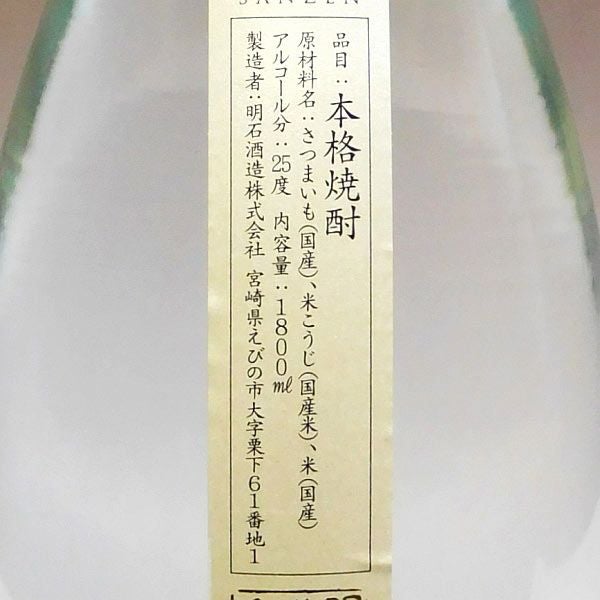 SANZEN
品目：本格焼酎
原材料名：さつまいも（国産）、米こうじ（国産米）、米（国産）
アルコール分：25度　内容量：1800ml
製造者：明石酒造株式会社　宮崎県えびの市大字栗下61番地1